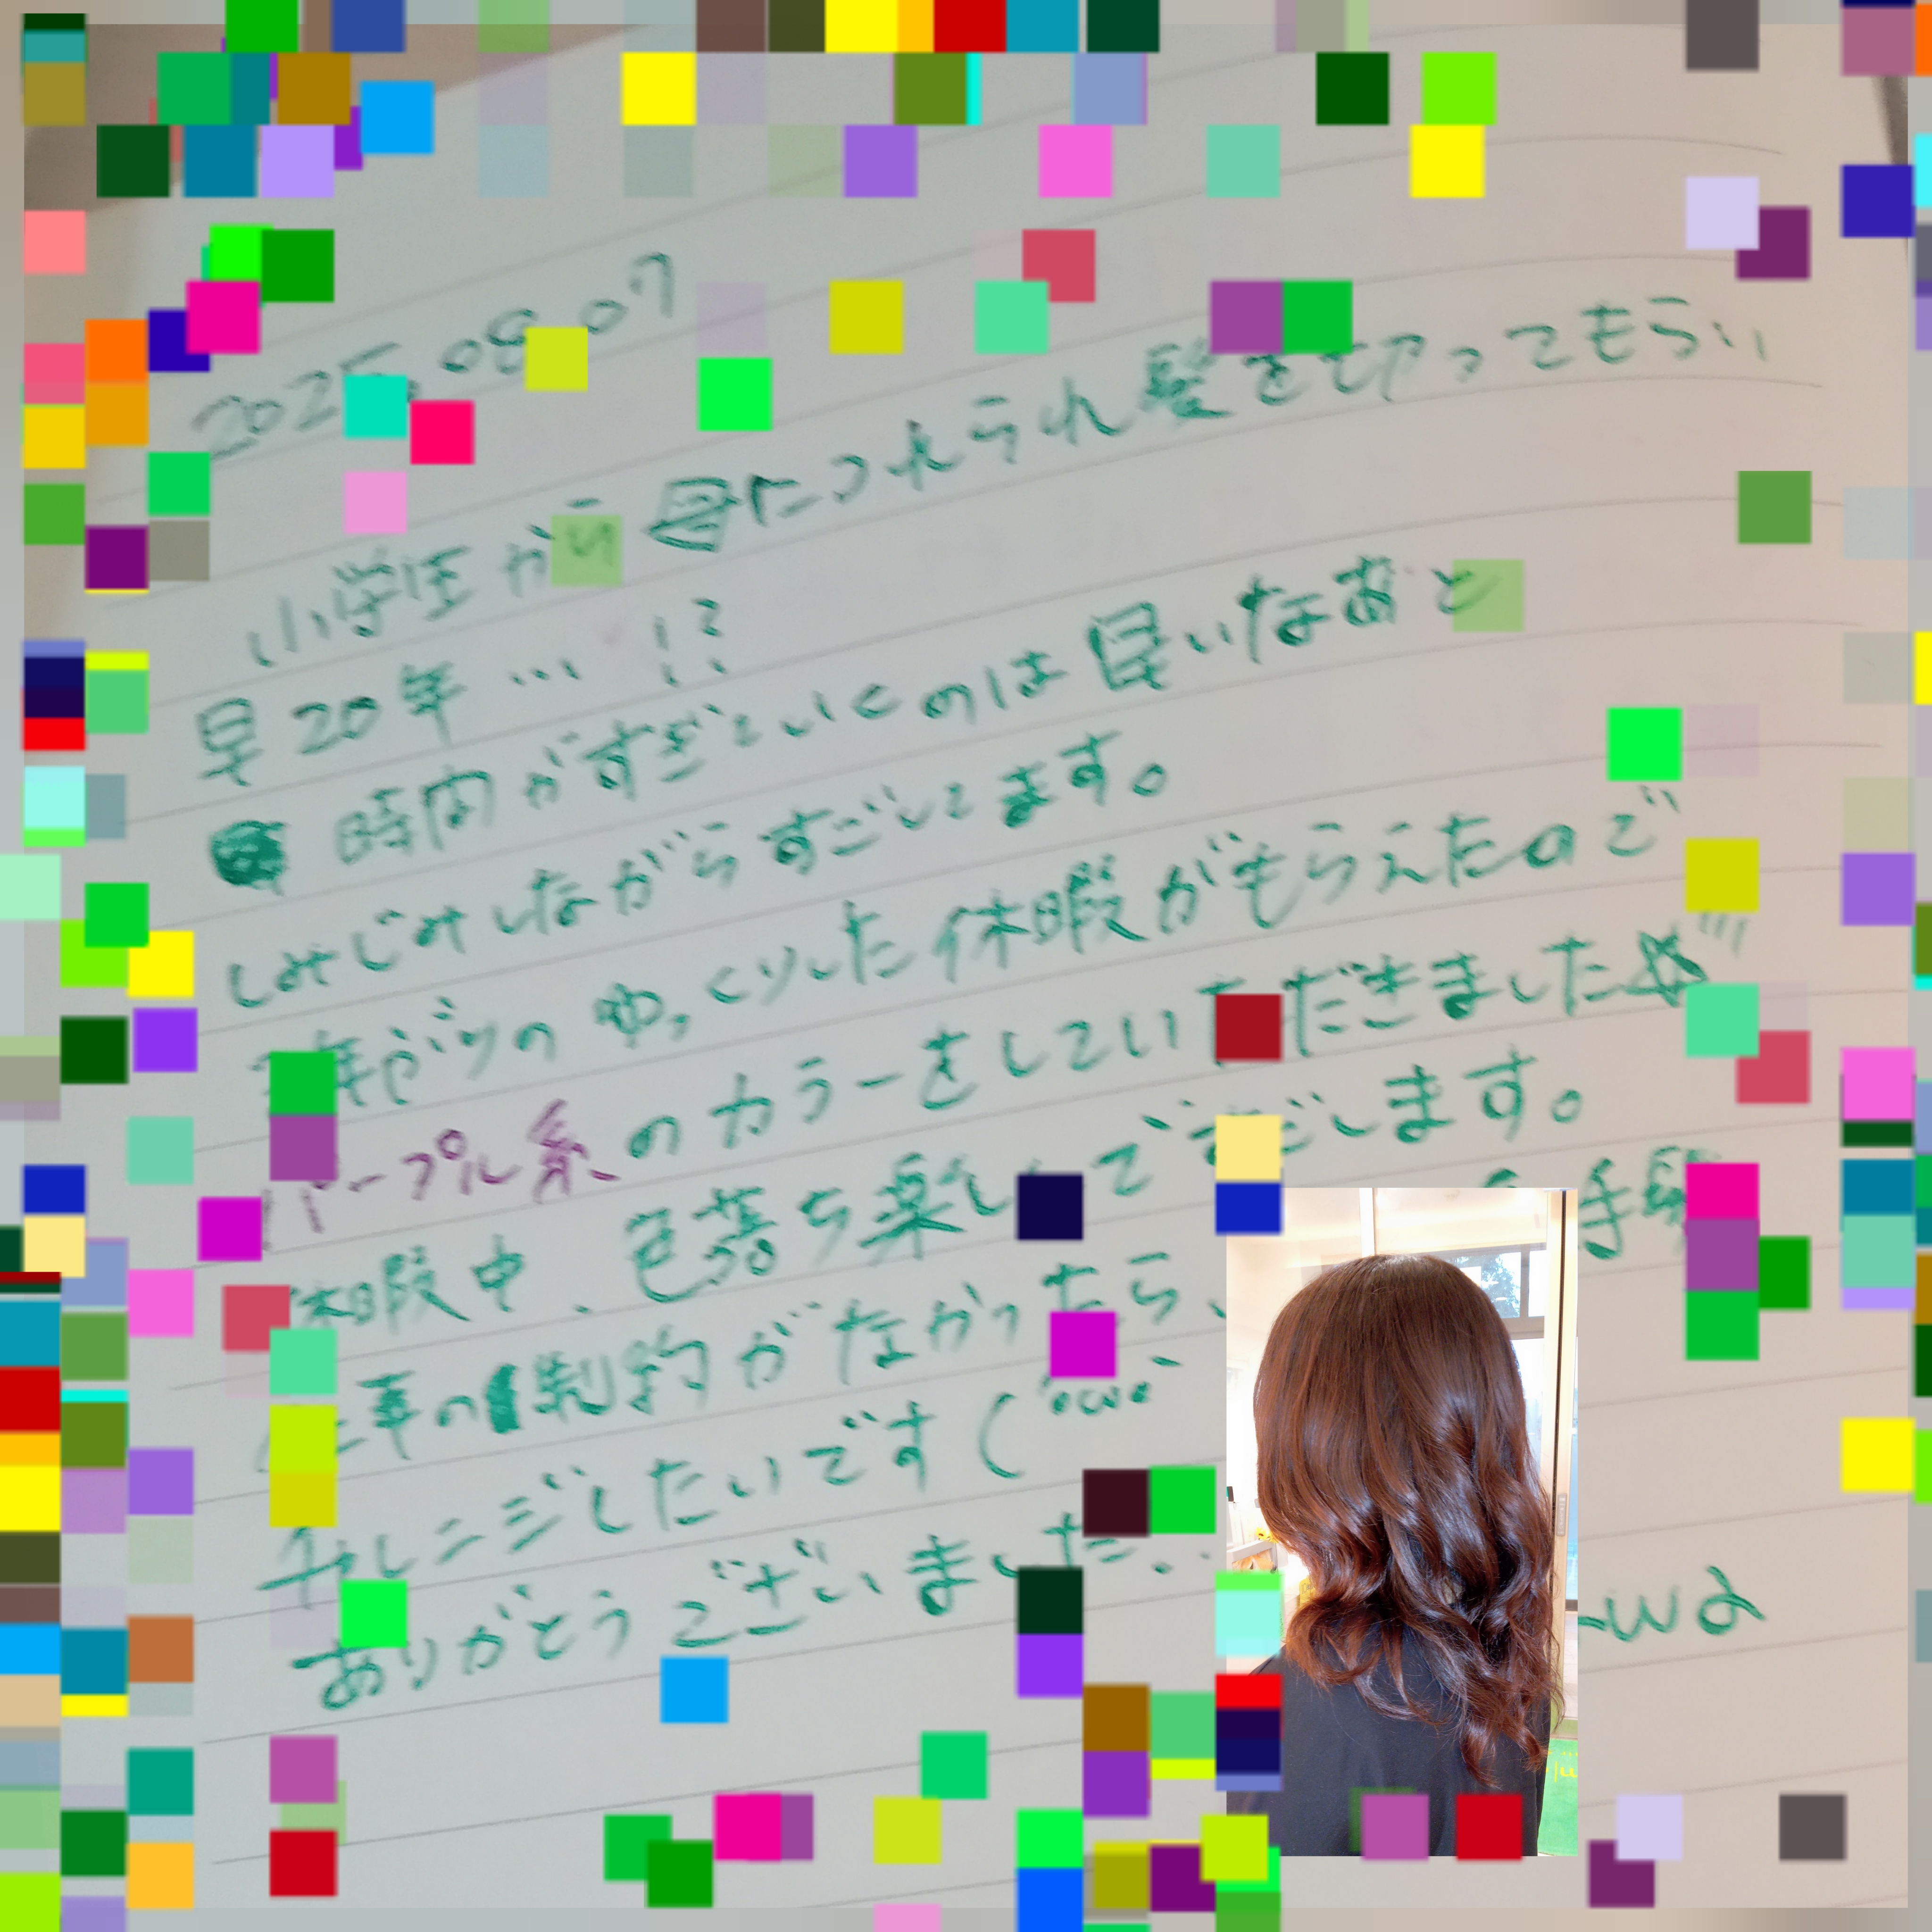 2025.08.07
小学生から母につれられ髪を切ってもらい
早20年…!?
時間がすぎていくのは早いなあと
しみじみしながらすごしてます。
年ぶりのゆっくりした休暇がもらえたので
パープル系のカラーをしていただきました☆
休暇中、色落ち楽しんですごします。
仕事の制約がなかったら、
チャレンジしたいです(
ありがとうございました